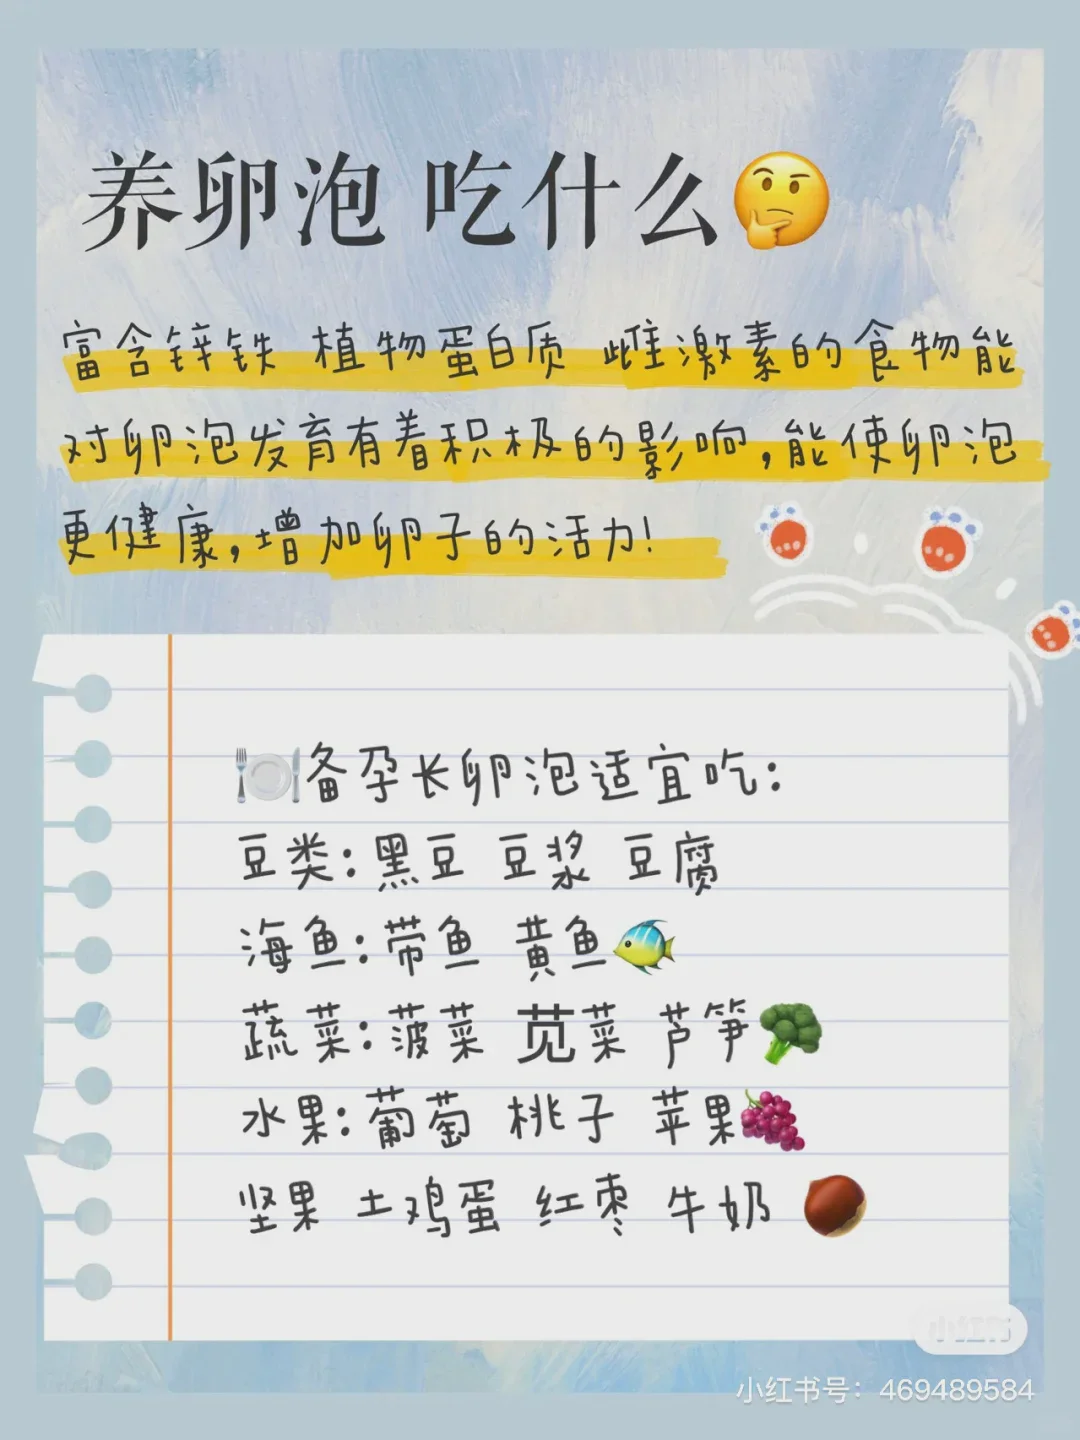 养卵泡 吃什么
富含锌铁 植物蛋白质 雌激素的食物能
对卵泡发育有着积极的影响,能使卵泡
更健康,增加卵子的活力!
备孕长卵泡适宜吃:
豆类:黑豆 豆浆 豆腐
海鱼:带鱼 黄鱼
蔬菜:菠菜 苋菜 芦笋
水果:葡萄 桃子 苹果
坚果 土鸡蛋 红枣 牛奶
小红书
小红书号: 469489584